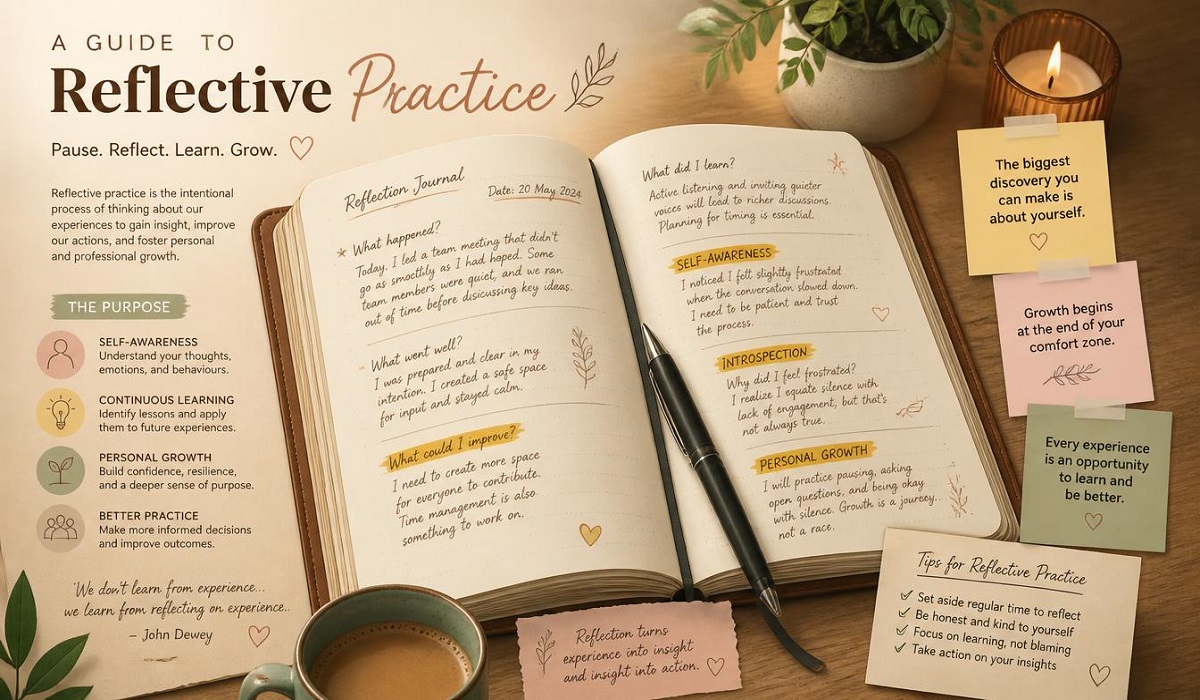 A GUIDE TO
Reflective Practice
Pause. Reflect. Learn. Grow.
Reflective practice is the intentional
process of thinking about our
experiences to gain insight, improve
our actions, and foster personal
and professional growth.
THE PURPOSE
SELF-AWARENESS
Understand your thoughts,
emotions, and behaviours.
CONTINUOUS LEARNING
Identify lessons and apply
them to future experiences.
PERSONAL GROWTH
Build confidence, resilience,
and a deeper sense of purpose.
BETTER PRACTICE
Make more informed decisions
and improve outcomes.
"We don't learn from experience...
we learn from reflecting on experience..
– John Dewey
Reflection Journal
Date: 20 May 2024
What happened?
Today, I led a team meeting that didn't
go as smoothly as I had hoped. Some
team members were quiet, and we ran
out of time before disicussing key ideas.
What went well?
I was prepared and clear in my
intention. I created a safe space
for input and stayed calm.
What could I improve?
I need to create more space
for everyone to contribute.
Time management is also
something to work on.
What did I learn?
Active listening and inviting quieter
voices will lead to richer discussions.
Planning for timing is essential.
SELF-AWARENESS
I noticed I felt slightly frustrated
when the conversation slowed down.
I need to be patient and trust
the process.
INTROSPECTION
Why did I feel frustrated?
I realize I equate silence with
lack of engagement, but that's
not always true.
PERSONAL GROWTH
I will practice pausing, asking
open questions, and being okay
with silence. Growth is a journey..
not a race.
The biggest
discovery you
can make is
about yourself.
Growth begins
at the end of your
comfort zone.
Every experience
is an opportunity
to learn and
be better.
Tips for Reflective Practice
✓ Set aside regular time to reflect
✓ Be honest and kind to yourself
✓ Focus on learning, not blaming
✓ Take action on your insights
Reflection turns
experience into insight
and insight into action.